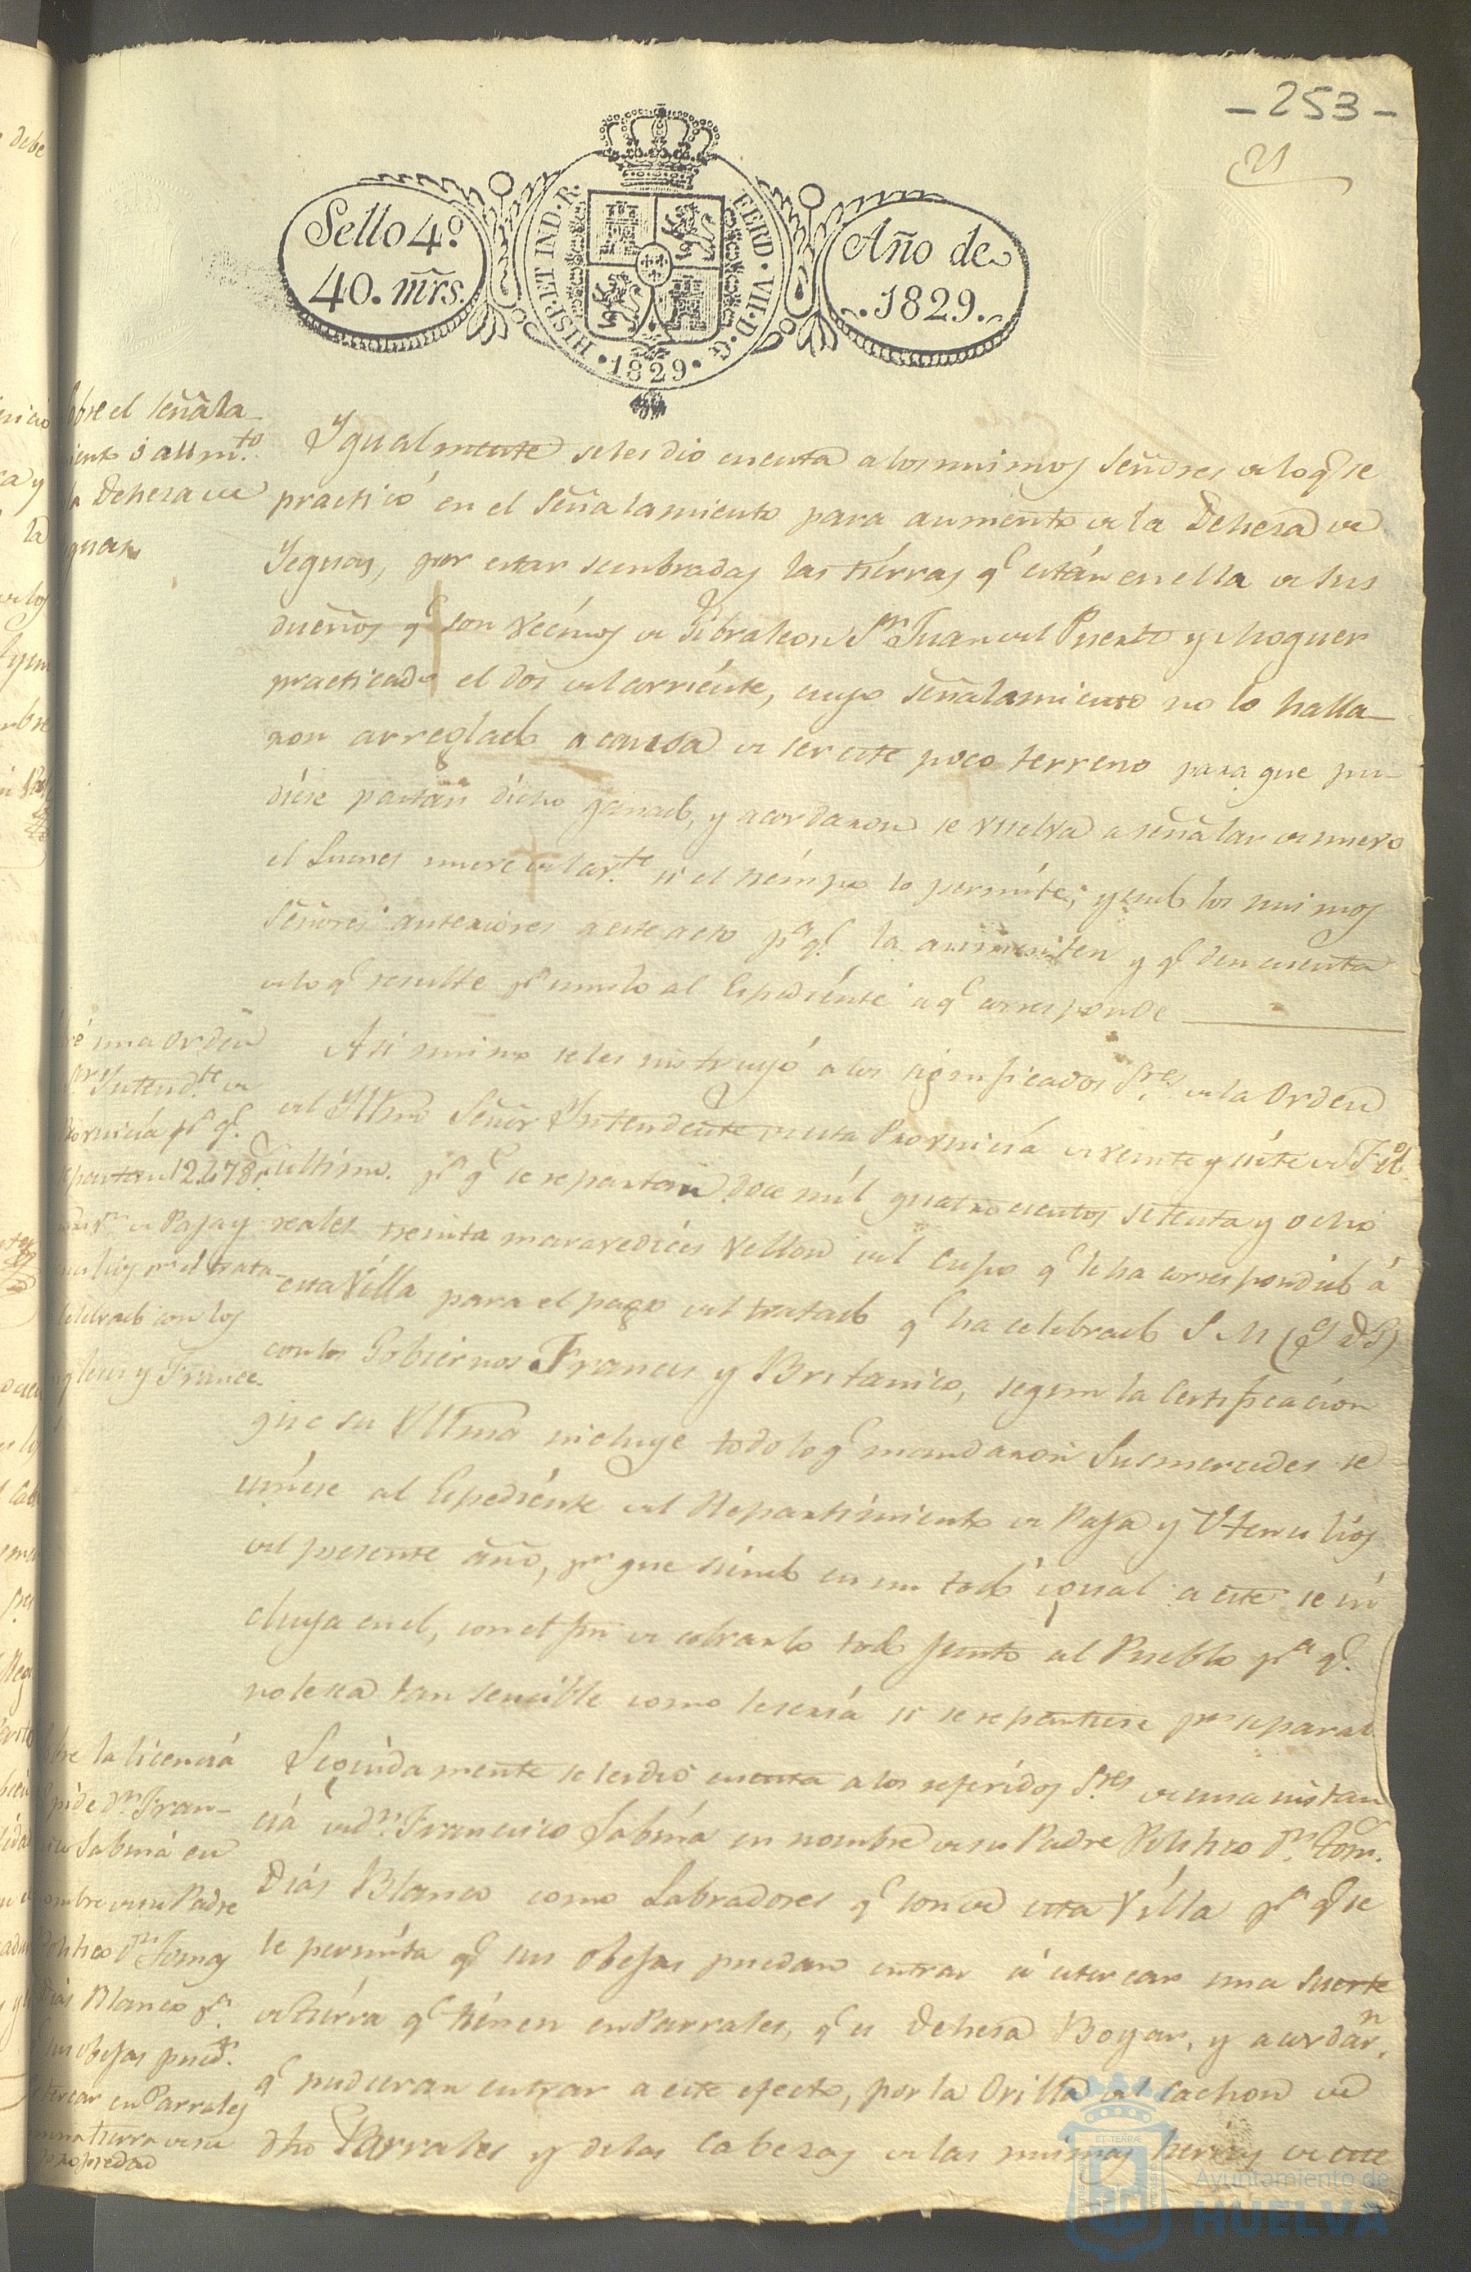 - 253 -
21
Sello 4º
40. mrs.
HISP. ET IND. R.
FERD. VII. D. G.
1829
Año de
1829.
obre el señala
iento o aum.to
la Dehesa de
guas
Ygualmente se les dio cuenta a los mismos Señores de lo q.e se
practicó en el Señalamiento para aumento de la Dehesa de
Yeguas, por estar sembradas las tierras q.e están en ella de sus
dueños q.e son vecinos de Gibraleon S.n Juan del Puerto y Moguer
practicado el dos del corriente, cuyo señalamiento no lo halla-
ron arreglado a causa de ser este poco terreno para que pu-
diese pastar dicho ganado, y acordaron se vuelva a señalar de nuevo
el Lunes nueve del cor.te si el tiempo lo permite; yendo los mismos
Señores anteriores a este acto p.a q.e la aumenten y q.e den cuenta
de lo q.e resulte p.a unirlo al Espediente a q.e corresponde
re una orden
Intend.te de
Provincia p.a q.e
repartan 12.478 r.
de Paja y
p.r el trata-
celebrado con los
gleses y France.
Asi mismo se les instruyó a los significados S.res de la Orden
del Yltmo Señor Yntendente de esta Provincia de veinte y siete de Feb.o
ultimo. p.a q.e se repartan doce mil quatrocientos setenta y ocho
reales treinta maravedices vellon del Cupo q.e le ha correspondido á
esta Villa para el pago del tratado q.e ha celebrado S M (q D G)
con los Gobiernos Frances y Britanico, segun la Certificacion
que su Yltma incluye todo lo q.e mandaron Sus mercedes se
uniese al Espediente del Repartimiento de Paja y Utensilios
del presente año, p.a que siendo en un todo igual a este se in
cluya en el, con el fin de cobrarlo todo junto al Pueblo p.a q.e
no le sea tan sencible como le seria si se repartiese por separad
bre la licencia
pide d.n Fran-
co Labina en
ombre de su Padre
Politico d.n Tomas
Dias Blanco p.a
q.e sus obejas pued.n
estercar en Parrales
una tierra de su
propiedad
Seguidamente se les dio cuenta a los referidos S.res de una instan
cia de d.n Francisco Labina en nombre de su Padre Politico D.n Tom.s
Dias Blanco como Labradores q.e son de esta Villa p.a q.e se
le permita q.e sus obejas puedan entrar á estercar una suerte
de tierra q.e tienen en Parrales, q.e es Dehesa Boyar, y acordar.n
q.e pudieran entrar a este efecto, por la Orilla del cachon de
dho Parrales y de las Cabezas de las mismas de este
Ayuntamiento de
HUELVA